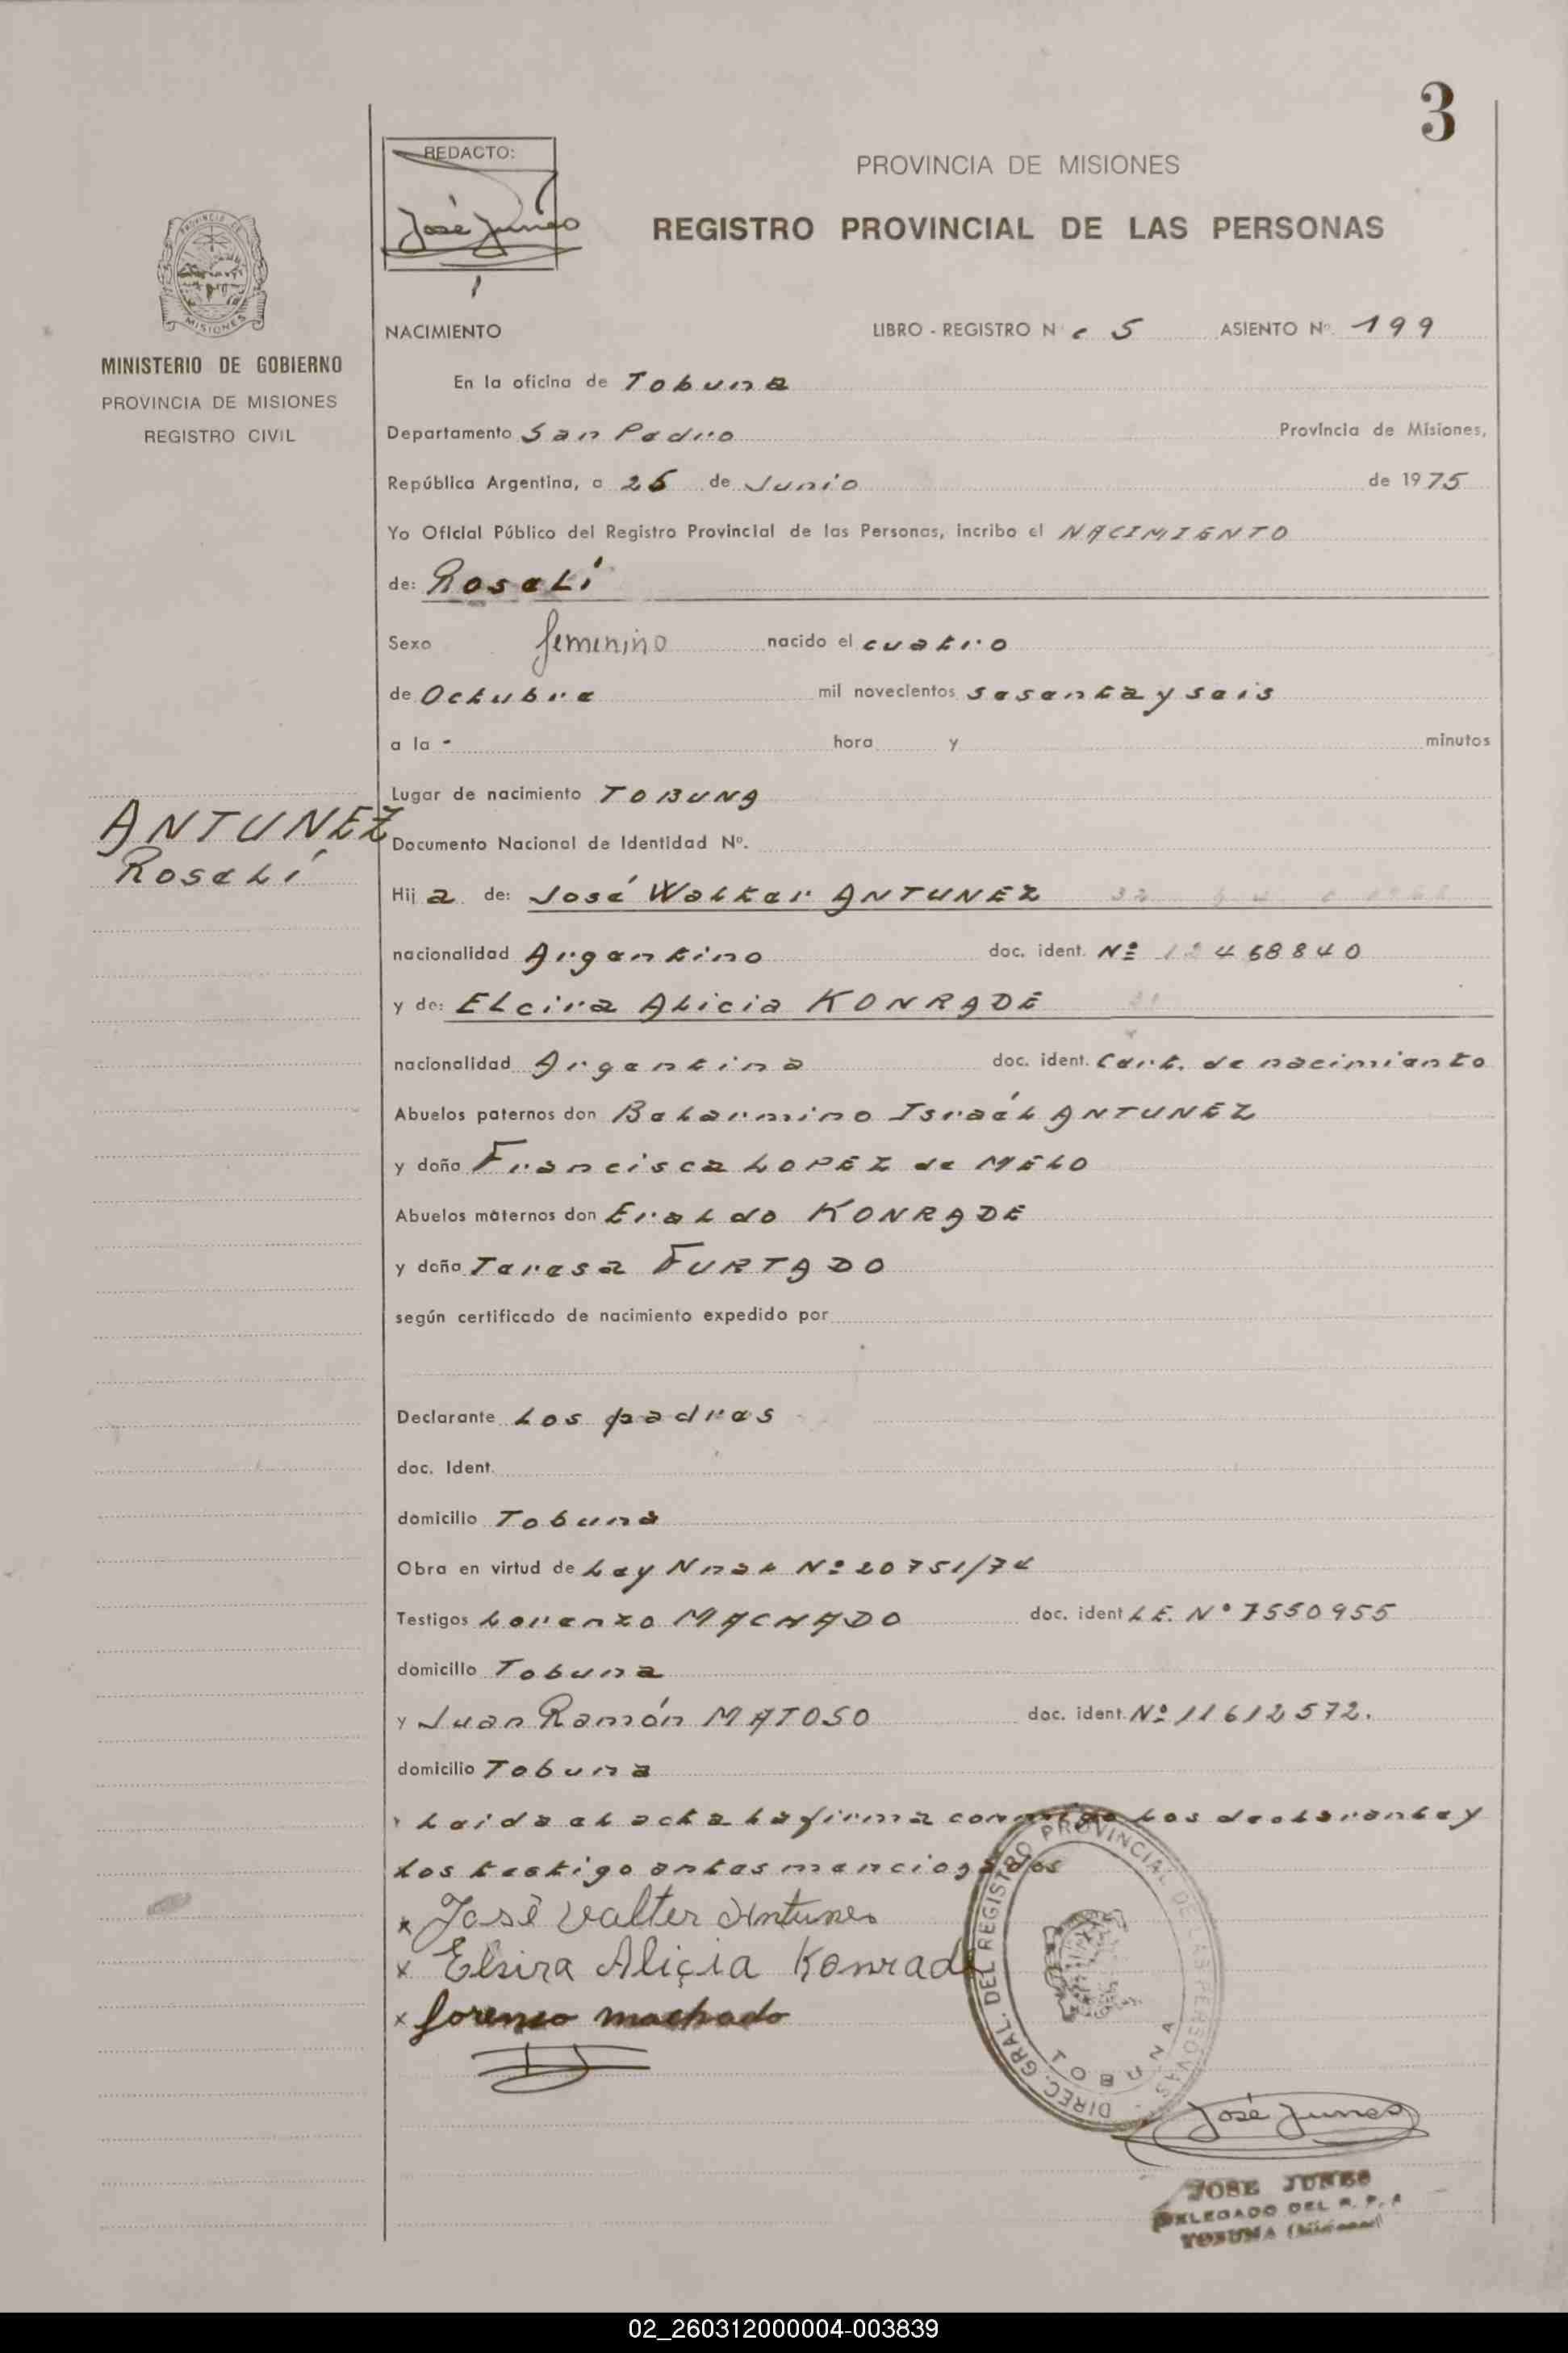 3
REDACTO:
José Junes
PROVINCIA DE MISIONES
REGISTRO PROVINCIAL DE LAS PERSONAS
PROVINCIA DE
MISIONES
MINISTERIO DE GOBIERNO
PROVINCIA DE MISIONES
REGISTRO CIVIL
NACIMIENTO LIBRO - REGISTRO Nº 5 ASIENTO Nº 199
En la oficina de Tobuna
Departamento San Pedro Provincia de Misiones,
República Argentina, a 26 de Junio de 1975
Yo Oficial Público del Registro Provincial de las Personas, incribo el NACIMIENTO
de: Roselí
Sexo femenino nacido el cuatro
de Octubre mil novecientos sesenta y seis
a la - hora y minutos
Lugar de nacimiento TOBUNA
ANTUNEZ
Roselí
Documento Nacional de Identidad Nº.
Hija de: José Walter ANTUNEZ
nacionalidad Argentino doc. ident. Nº 12468840
y de: Elcira Alicia KONRADE
nacionalidad Argentina doc. ident. Cert. de nacimiento
Abuelos paternos don Belarmino Israél ANTUNEZ
y doña Francisca LOPEZ de MELO
Abuelos maternos don Eraldo KONRADE
y doña Teresa FURTADO
según certificado de nacimiento expedido por
Declarante Los padres
doc. Ident.
domicilio Tobuna
Obra en virtud de Ley Nnal Nº 20751/74
Testigos Lorenzo MACHADO doc. ident L.E. Nº 7550955
domicilio Tobuna
y Juan Ramón MATOSO doc. ident. Nº 11612572.
domicilio Tobuna
Leida el acta la firma conmigo los declarante y
los testigo antes mencionados
x José Valter Antunes
x Elsira Aliçia Konrade
x Lorenso machado
DIREC. GRAL. DEL REGISTRO PROVINCIAL DE LAS PERSONAS
TOBUNA
José Junes
JOSE JUNES
DELEGADO DEL R. P. P.
TOBUNA (Misiones)
02_260312000004-003839